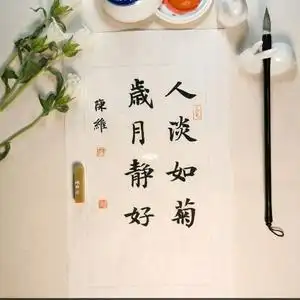 人淡如菊
歲月靜好
陳維